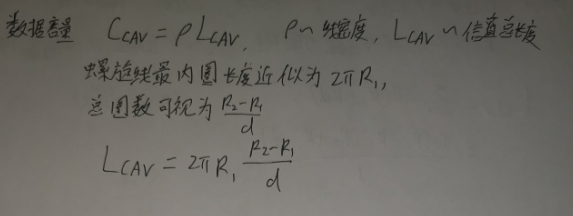 数据容量 C_CAV = ρL_CAV, ρ~线密度, L_CAV ~ 信道总长度
螺旋线最内圈长度近似为 2πR₁,
总圈数可视为 (R₂-R₁)/d
L_CAV = 2πR₁ (R₂-R₁)/d